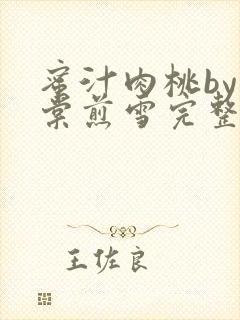 蜜汁肉桃by
棠煎雪完整
王佐良